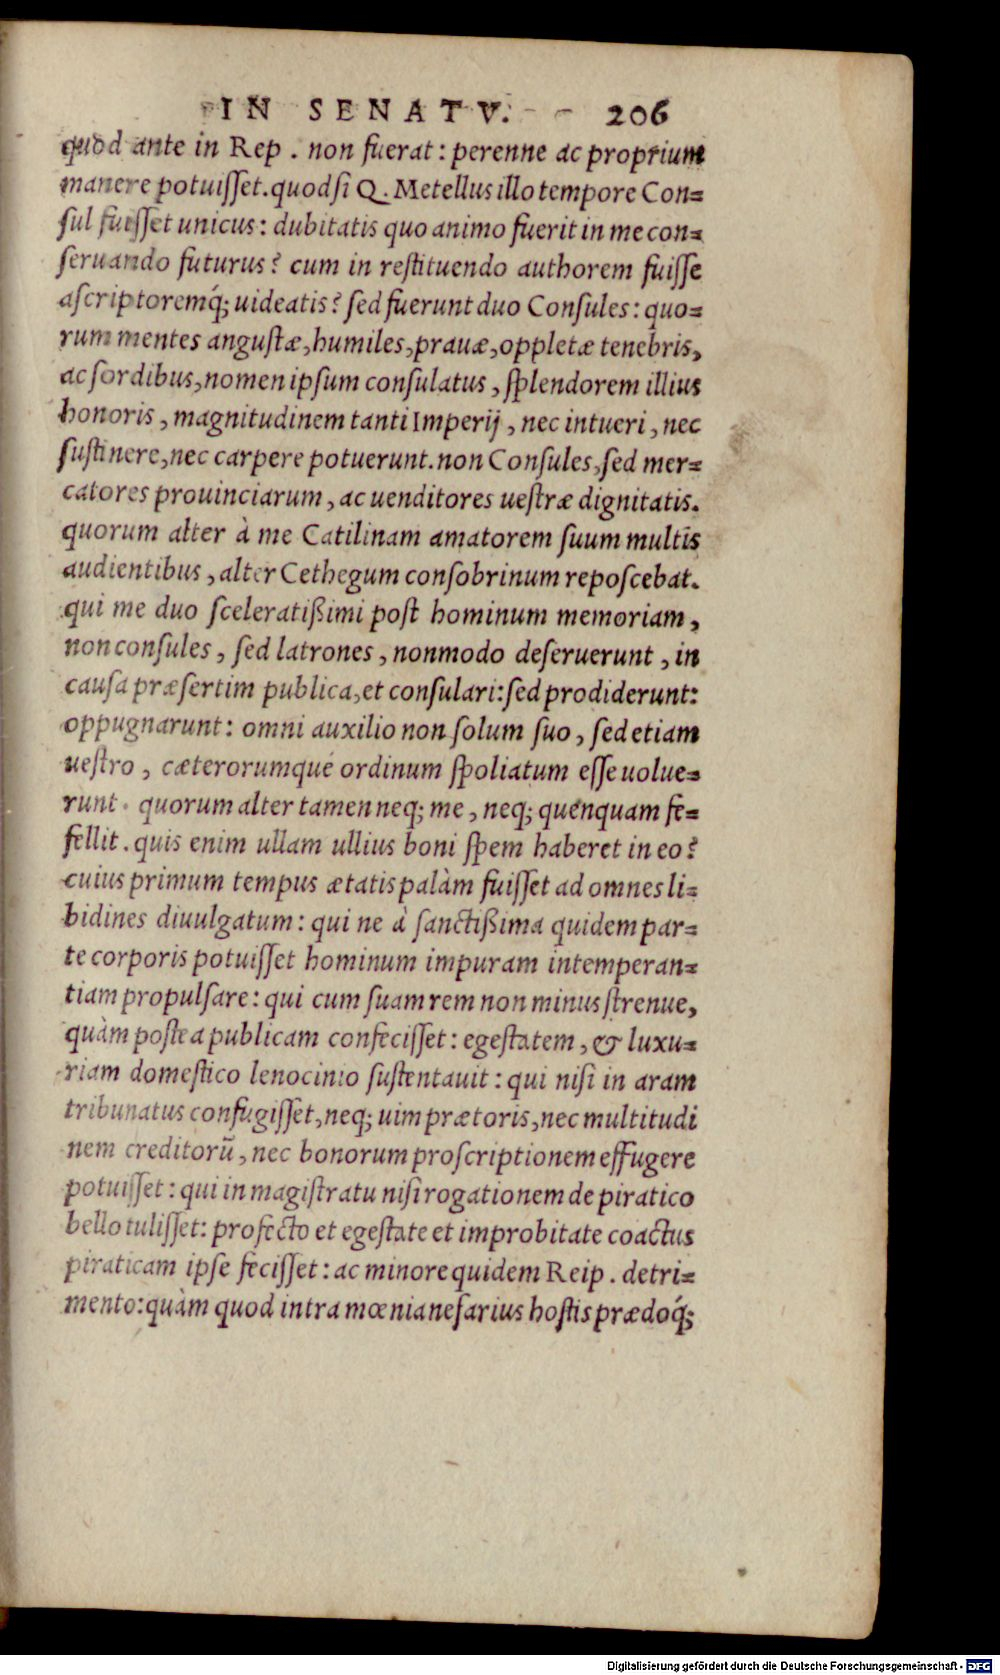 IN SENATV. 206
quod ante in Rep. non fuerat: perenne ac proprium
manere potuiſſet. quodſi Q. Metellus illo tempore Con=
ſul fuiſſet unicus: dubitatis quo animo fuerit in me con=
ſeruando futurus? cum in reſtituendo authorem fuiſſe
aſcriptoremq́; uideatis? ſed fuerunt duo Conſules: quo=
rum mentes anguſtæ, humiles, prauæ, oppletæ tenebris,
ac ſordibus, nomen ipſum conſulatus, ſplendorem illius
honoris, magnitudinem tanti Imperij, nec intueri, nec
ſuſtinere, nec carpere potuerunt. non Conſules, ſed mer=
catores prouinciarum, ac uenditores ueſtræ dignitatis.
quorum alter à me Catilinam amatorem ſuum multis
audientibus, alter Cethegum conſobrinum repoſcebat.
qui me duo ſceleratißimi poſt hominum memoriam,
non conſules, ſed latrones, nonmodo deſeruerunt, in
cauſa præſertim publica, et conſulari: ſed prodiderunt:
oppugnarunt: omni auxilio non ſolum ſuo, ſed etiam
ueſtro, cæterorumque ordinum ſpoliatum eſſe uolue=
runt. quorum alter tamen neq; me, neq; quenquam fe=
fellit. quis enim ullam ullius boni ſpem haberet in eo?
cuius primum tempus ætatis palàm fuiſſet ad omnes li=
bidines diuulgatum: qui ne à ſanctißima quidem par=
te corporis potuiſſet hominum impuram intemperan=
tiam propulſare: qui cum ſuam rem non minus ſtrenue,
quàm poſtea publicam confeciſſet: egeſtatem, & luxu=
riam domeſtico lenocinio ſuſtentauit: qui niſi in aram
tribunatus confugiſſet, neq; uim prætoris, nec multitudi
nem creditorū, nec bonorum proſcriptionem effugere
potuiſſet: qui in magiſtratu niſi rogationem de piratico
bello tuliſſet: profecto et egeſtate et improbitate coactus
piraticam ipſe feciſſet: ac minore quidem Reip. detri=
mento: quàm quod intra mœnia nefarius hoſtis prædoq́;
Digitalisierung gefördert durch die Deutsche Forschungsgemeinschaft - DFG